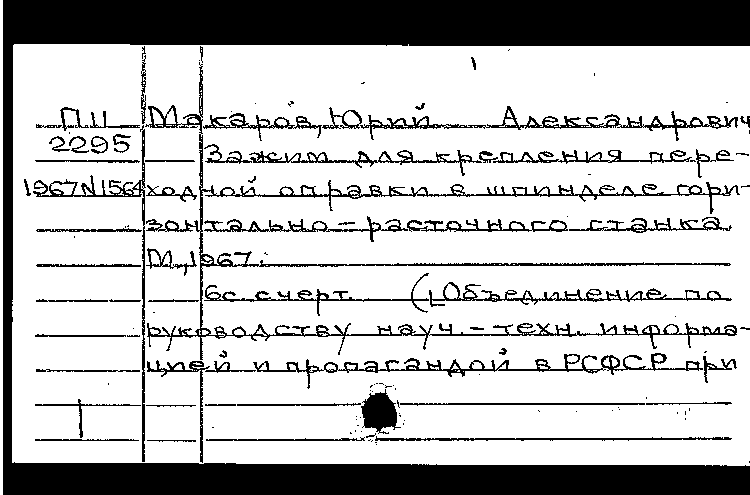 П11 Макаров, Юрий Александрович
2295 Зажим для крепления пере-
1967N1564 ходной оправки в шпинделе гори-
зонтально-расточного станка.
М., 1967.
6с. с черт. ([Объединение по
руководству науч.-техн. информа-
цией и пропагандой в РСФСР при